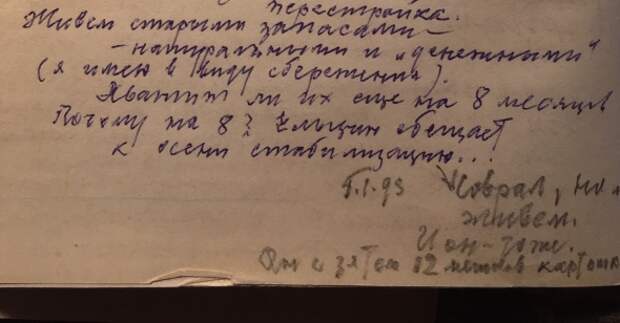 перестройка.
Живем старыми запасами —
— натуральными и „денежными“
(я имею в виду сбережения).
Хватит ли их еще на 8 месяцев
Почему на 8? Ельцин обещает
к осени стабилизацию...
5.I.93 Соврал, но
живем.
И он - тоже.
с зятем 12 мешков картошк